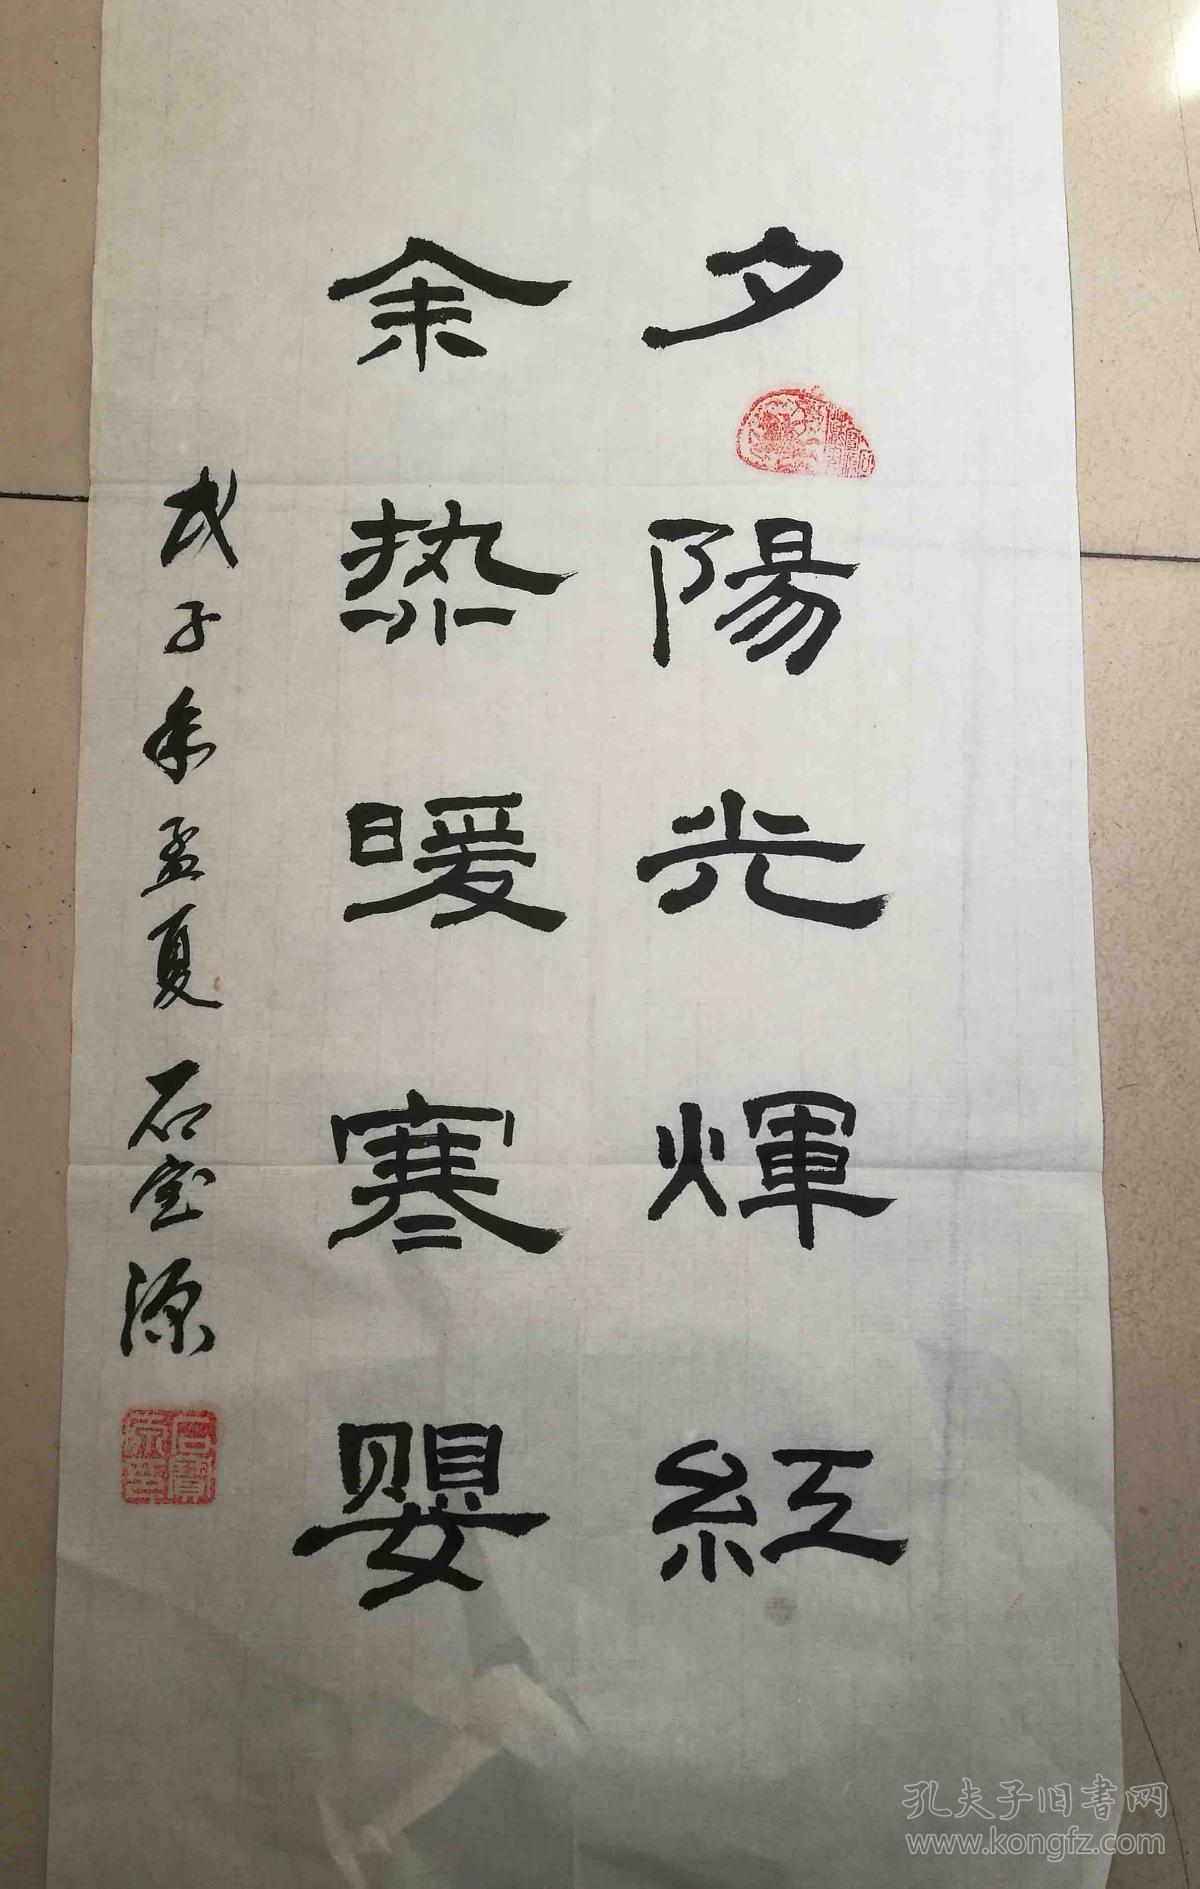 夕陽光煇紅
余热暖寒嬰
戊子年孟夏 石宝源
孔夫子旧书网
www.kongfz.com